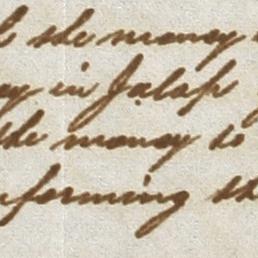 the money
in Jalap
the money to
forming the